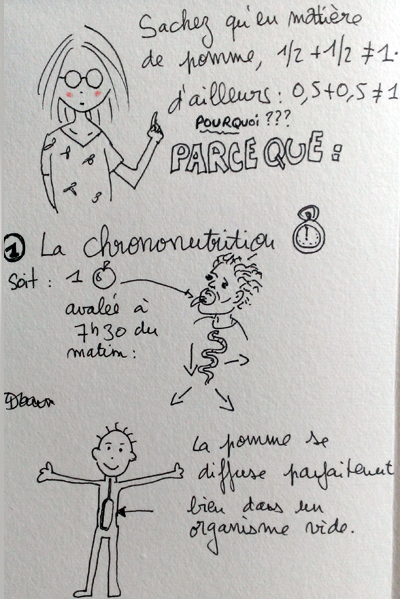 Sachez qu'en matière
de pomme, 1/2 + 1/2 ≠ 1.
d'ailleurs : 0,5 + 0,5 ≠ 1
POURQUOI ???
PARCE QUE :
1 La chrononutrition
Soit : 1
avalée à
7h30 du
matin :
La pomme se
diffuse parfaitement
bien dans un
organisme vide.